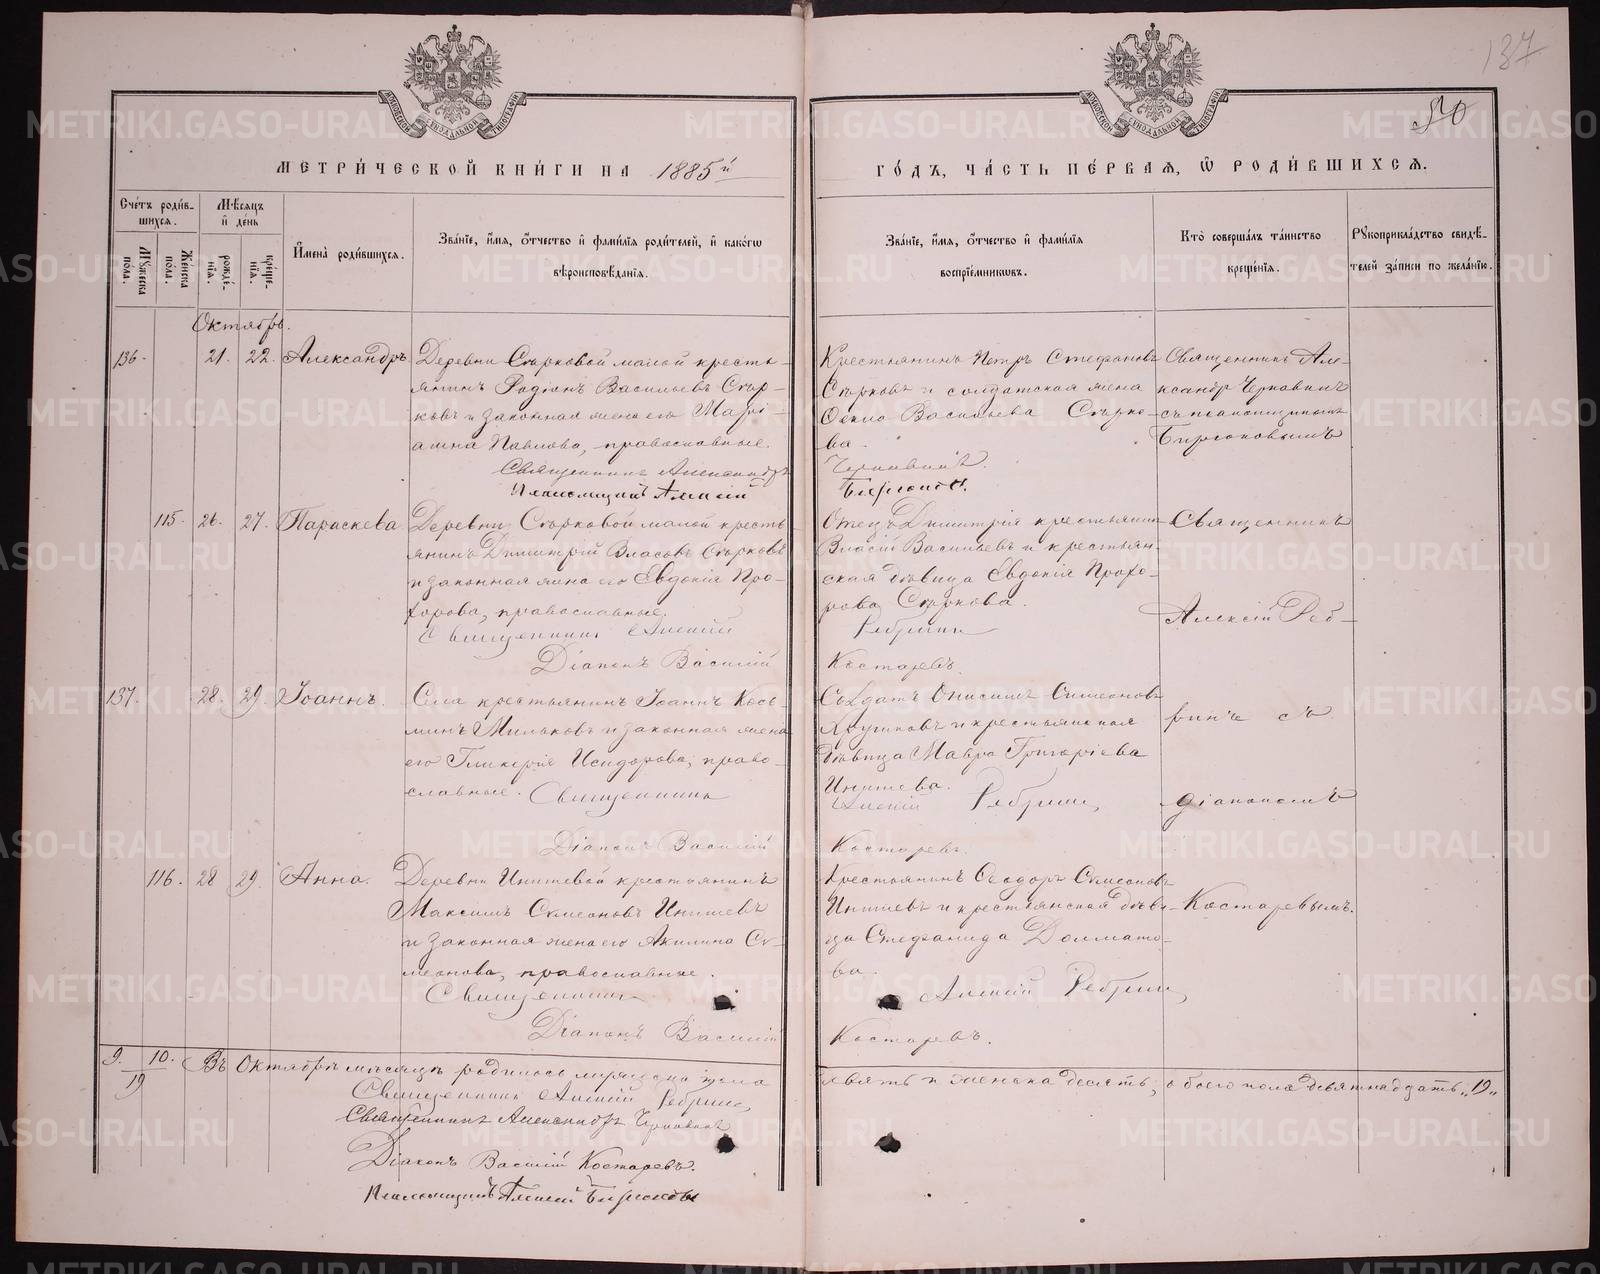 137
50
МЕТРИ́ЧЕСКОЙ КНИ́ГИ НА 1885й
ГО́ДЪ, ЧА́СТЬ ПЕ́РВАЯ, Ѡ РОДИ́ВШИХСЯ.
Сче́тъ роди́в-
шихся.
Мѣ́сяцъ
и де́нь
Мꙋжеска
по́ла.
Же́нска
по́ла.
рожде́-
нїя.
креще́-
нїя.
Имена̀ роди́вшихся.
Зва́нїе, и́мя, ѻ́тчество и фами́лїя роди́телей, и како́гѡ
вѣроисповѣ́данїя.
Зва́нїе, и́мя, ѻ́тчество и фами́лїя
воспрїе́мникѡвъ.
Кто̀ соверша́лъ та́инство
креще́нїя.
Рꙋкоприкла́дство свидѣ́-
телей за́писи по жела́нїю.
Октябрь.
136. 21. 22. Александръ
Деревни Сѣрковой малой кресть-
янинъ Родіонъ Васильевъ Сѣр-
ковъ и законная жена его Марі-
амна Павлова, православные.
Священникъ Александръ
Псаломщикъ Алексій
Крестьянинъ Петръ Стефановъ
Сѣрковъ и солдатская жена
Ѳекла Васильева Сѣрко-
ва.
Чернавинъ.
Бирюковъ.
Священникъ Але-
ксандръ Чернавинъ
съ псаломщикомъ
Бирюковымъ
115. 26. 27. Параскева
Деревни Сѣрковой малой кресть-
янинъ Димитрій Власовъ Сѣрковъ
и законная жена его Евдокія Про-
хорова, православные.
Священникъ Алексій
Діаконъ Василій
Отецъ Димитрія крестьянинъ
Власій Васильевъ и крестьян-
ская дѣвица Евдокія Прохо-
рова Сѣркова.
Ребринъ
Костаревъ.
Священникъ
Алексій Реб-
137. 28. 29. Іоаннъ.
Села крестьянинъ Іоаннъ Кось-
минъ Мильковъ и законная жена
его Гликерія Исидорова, право-
славные. Священникъ
Діаконъ Василій
Солдатъ Онисимъ Симеоновъ
и крестьянская
дѣвица Мавра Григоріева
Инишева.
Алексій Ребринъ
Костаревъ.
ринъ съ
діакономъ
116. 28 29. Анна.
Деревни Инишевой крестьянинъ
Максимъ Симеоновъ Инишевъ
и законная жена его Акилина Си-
меонова, православные.
Священникъ
Діаконъ Василій
Крестьянинъ Ѳеодоръ Симеоновъ
Инишевъ и крестьянская дѣви-
ца Стефанида Долмато-
ва.
Алексій Ребринъ
Костаревъ.
Костаревымъ.
9. 10. Въ Октябрѣ мѣсяцѣ родилось мужеска пола
19
девять и женска десять, обоего пола девятнадцать „19„
Священникъ Алексій Ребринъ
Священникъ Александръ Чернавинъ
Діаконъ Василій Костаревъ.
Псаломщикъ Алексій Бирюковъ